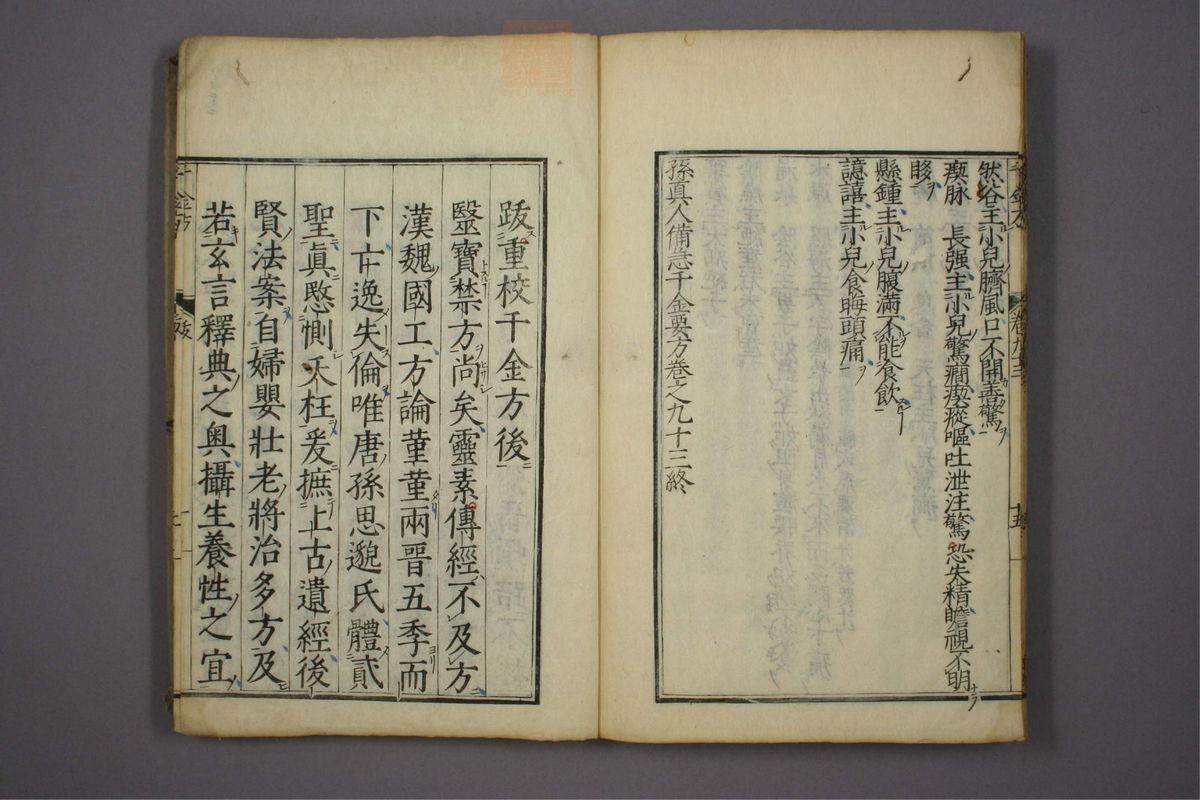 然谷主小兒臍風口不開善驚
瘈脉　長强主小兒驚癇瘈瘲嘔吐泄注驚恐失精瞻視不明
眵
懸鍾主小兒腹滿不能食飲
譩譆主小兒食晦頭痛
孫真人備急千金要方卷之九十三終
跋重校千金方後
毉寶禁方尚矣靈素傳經不及方
漢魏國工方論菫菫兩晉五季而
下亡逸失倫唯唐孫思邈氏體貳
聖眞愍惻夭枉爰摭上古遺經後
賢法案自婦嬰壯老將治多方及
若玄言釋典之奥攝生養性之宜